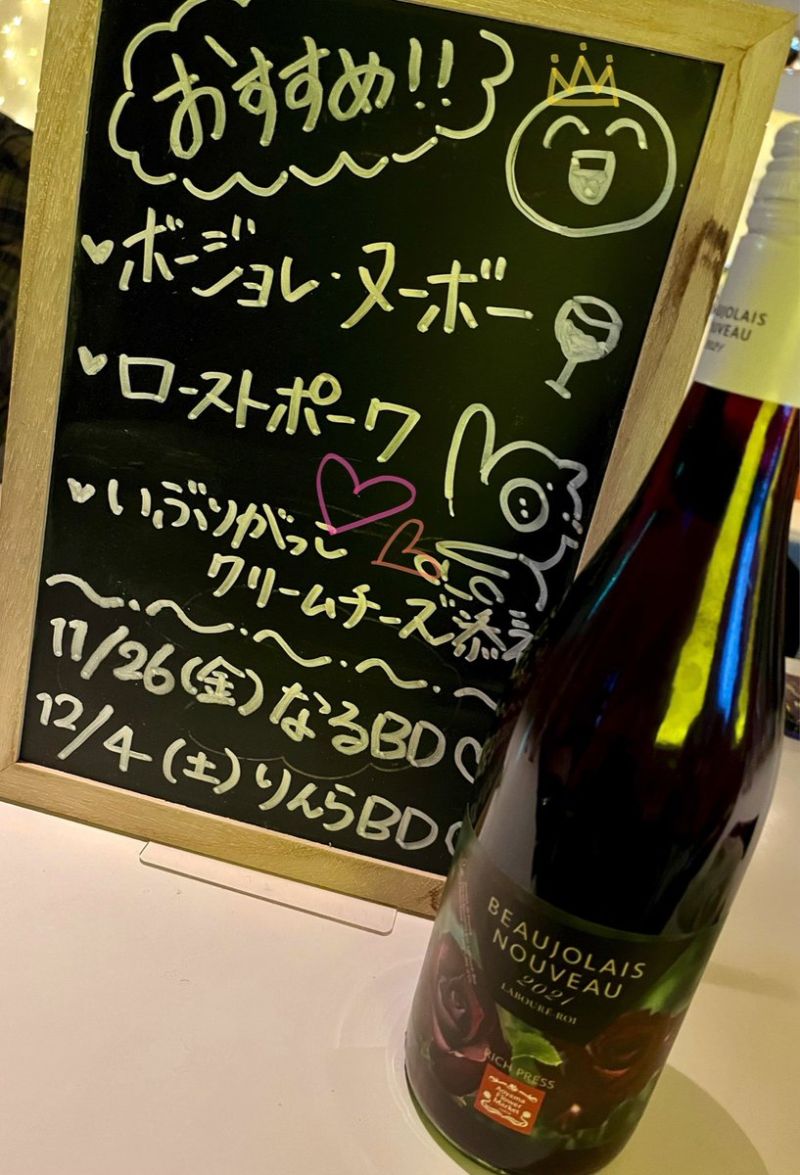 おすすめ!!
ボージョレ・ヌーボー
ローストポーク
いぶりがっこ
クリームチーズ添え
11/26(金)なるBD♡
12/4(土)りんらBD
UJOLAIS
UVEAU
2021
BEAUJOLAIS
NOUVEAU
2021
LABOURÉ-ROI
RICH PRESS
Aoyama
Flower
Market